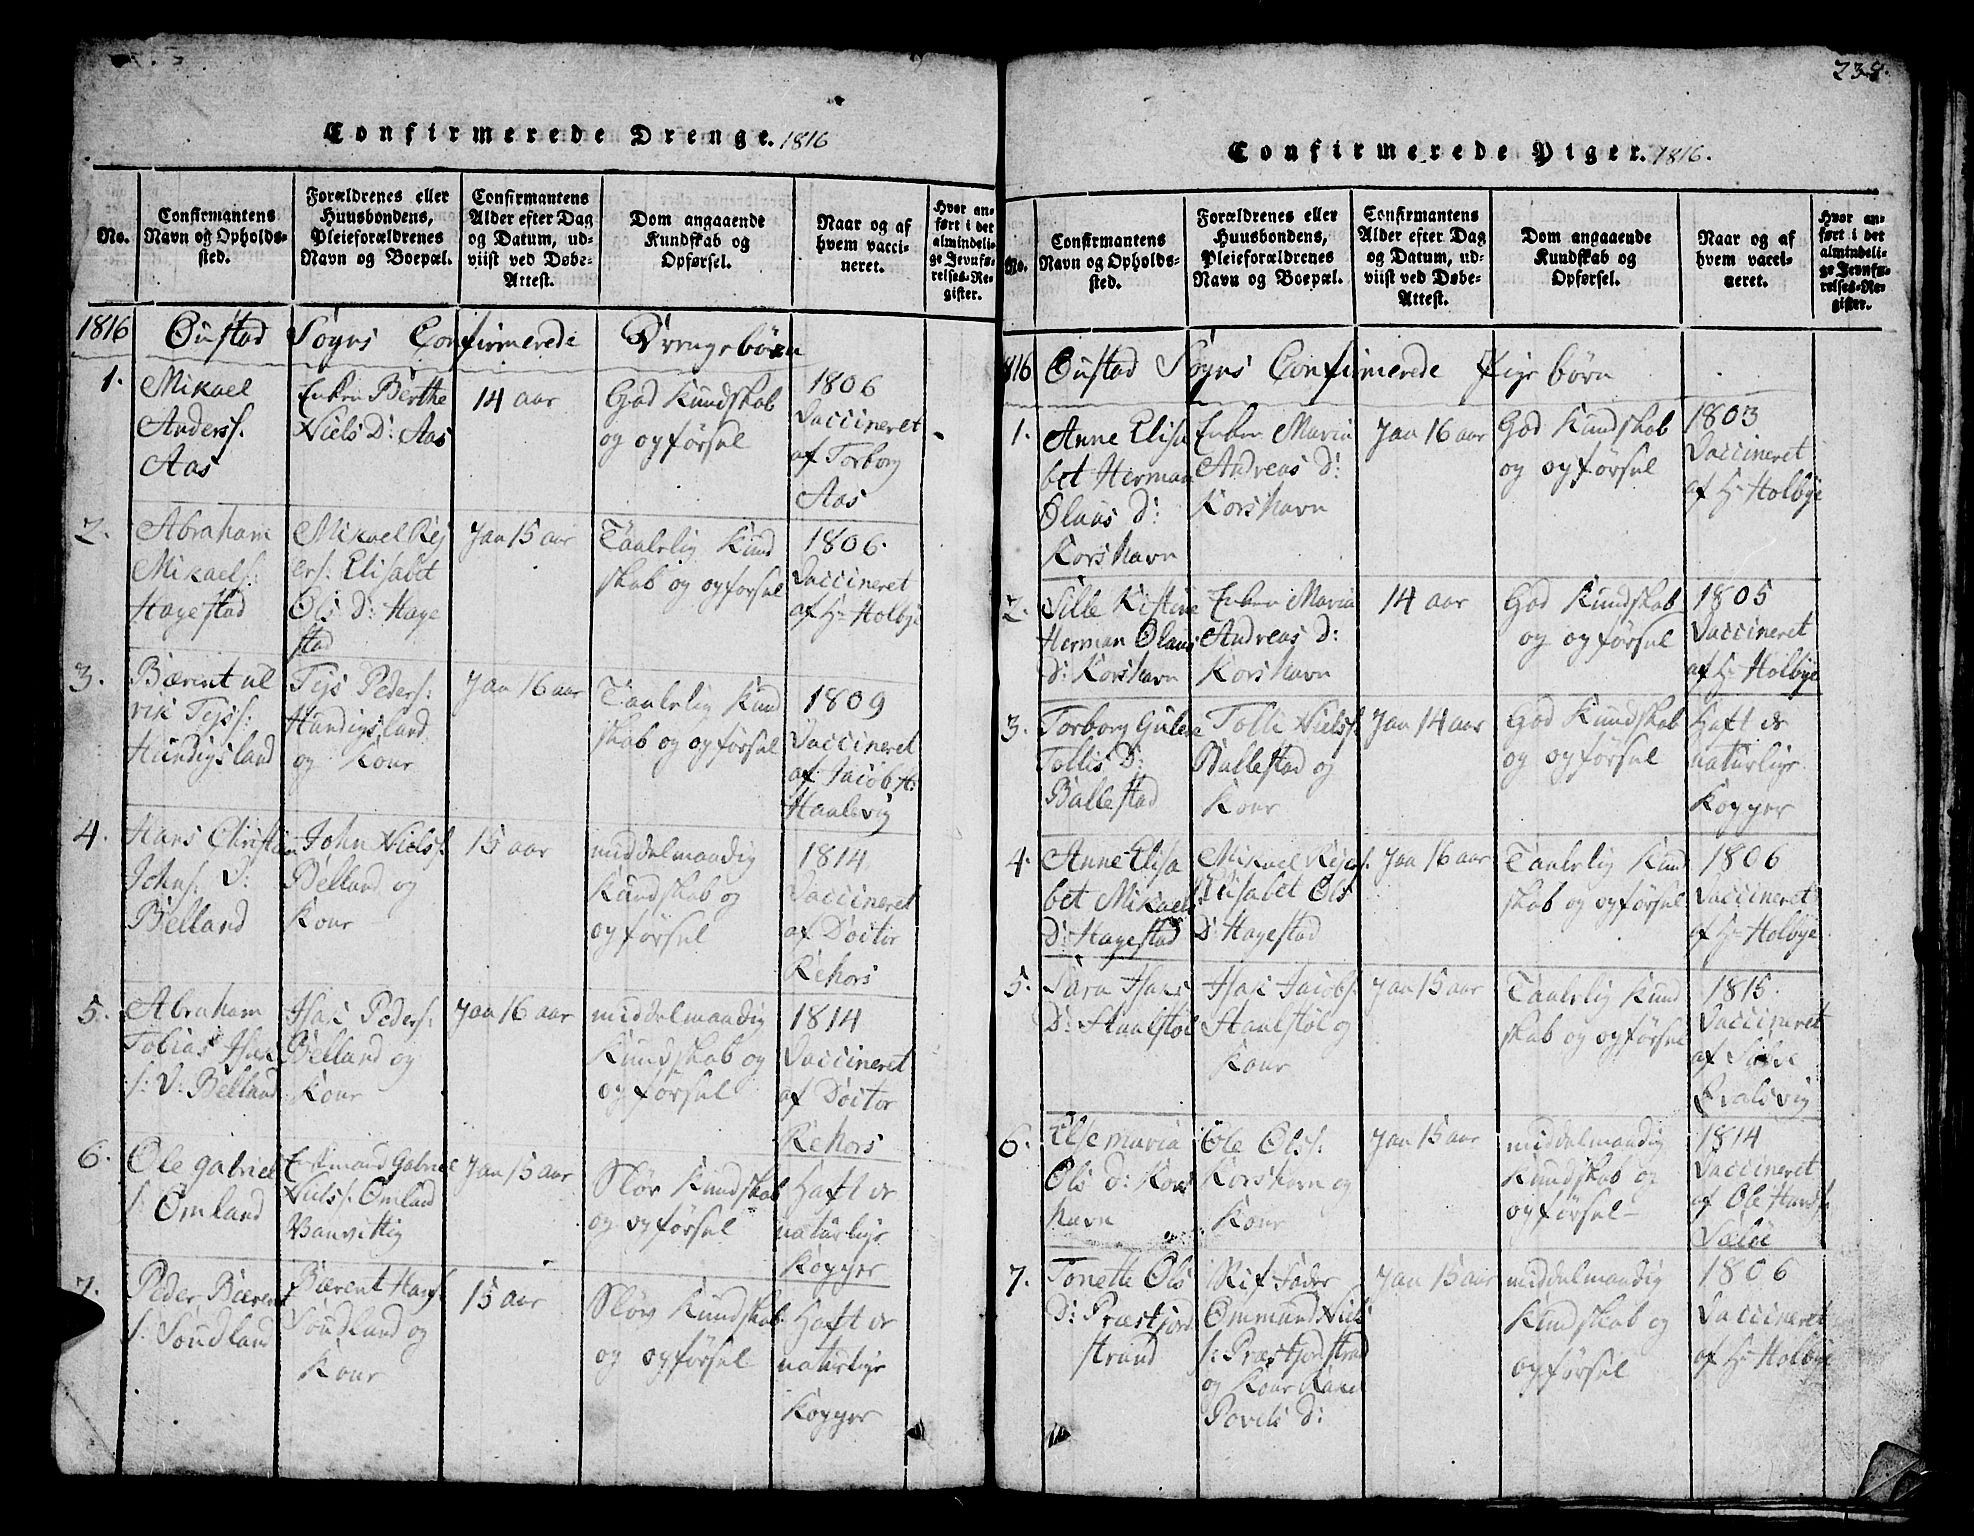 Confirmerede Drenge. 1816
No.
Confirmantens
Navn og Opholds-
sted.
Forældrenes eller
Huusbondens,
Pleieforældrenes
Navn og Boepæl.
Confirmantens
Alder efter Dag
og Datum, ud-
viist ved Døbe-
Attest.
Dom angaaende
Kundskab og
Opførsel.
Naar og af
hvem vacci-
neret.
Hvor an-
ført i det
almindeli-
ge Jevnfø-
relses-Re-
gister.
1816 Øustad Sogns Confirmerede Drengebørn
1.
Mikael
Anders s.
Aas
Enken Berthe
Niels D: Aas
14 aar
God Kundskab
og opførsel
1806
Vaccineret
af Torborg
Aas
2.
Abraham
Mikaels:
Hagestad
Mikael Rej
ers. Elisabet
Ols D: Hage
stad
Jaa 15 aar
Taalelig Kund
skab og opførsel
1806.
Vaccineret
af Hr Holbye
3.
Bærent ul
rik Tejs s:
Hundigsland
Tejs Peders:
Hundigsland
og Kone
Jaa 16 aar
Taalelig Kund
skab og opførsel
1809
Vaccineret
af Jacob H:
Haalevig
4.
Hans Christian
Johns. D:
Belland
John Niels s.
Belland og
Kone
15 aar
middelmaadig
Kundskab og
opførsel
1814
Vaccineret
af Doctor
Rehors
5.
Abraham
Tobias Isak
s: D: Belland
Isac Peders:
Belland og
Kone
Jaa 16 aar
middelmaadig
Kundskab og
opførsel
1814
Vaccineret
af Doctor
Rehors
6.
Ole gabriel
s: Omland
Gabriel
Niels s. Omland
Vanvittig
Jaa 15 aar
Sløv Kundskab
og opførsel
Haft de
naturlige
Kopper
7.
Peder Bærent
s: Soudland
Bærent Hans s.
Soudland og
Kone
15 aar
Sløv Kundskab
og opførsel
Haft de
naturlige
Kopper
238.
Confirmerede Piger. 1816.
No.
Confirmantens
Navn og Opholds-
sted.
Forældrenes eller
Huusbondens,
Pleieforældrenes
Navn og Boepæl.
Confirmantens
Alder efter Dag
og Datum, ud-
viist ved Døbe-
Attest.
Dom angaaende
Kundskab og
Opførsel.
Naar og af
hvem vacci-
neret.
Hvor an-
ført i det
almindeli-
ge Jevnfø-
relses-Re-
gister.
1816 Øustad Sogns Confirmerede Pigebørn
1.
Anne Elisa
bet Herman
Olaus D:
Korshavn
Enken Maria
Andreas D:
Korshavn
Jaa 16 aar
God Kundskab
og opførsel
1803
Vaccineret
af Hr Holbye
2.
Sille Kistine
Herman Olaus
D: Korshavn
Enken Maria
Andreas D:
Korshavn
14 aar
God Kundskab
og opførsel
1805
Vaccineret
af Hr Holbye
3.
Torborg Gulene
Tollis D:
Ballestad
Tolle Niels s.
Ballestad og
Kone
Jaa 14 aar
God Kundskab
og opførsel
Haft de
naturlige
Kopper
4.
Anne Elisa
bet Mikaels
D: Hagestad
Mikael Rejers.
Elisabet Ols
D: Hagestad
Jaa 16 aar
Taalelig Kund
skab og opførsel
1806
Vaccineret
af Hr Holbye
5.
Sara Isacs
D: Staalstøl
Isac Jacobs.
Staalstøl og
Kone
Jaa 15 aar
Taalelig Kund
skab og opførsel
1815.
Vaccineret
af
6.
Else maria
Ols D: Kors
havn
Ole Ols s.
Korshavn og
Kone
Jaa 15 aar
middelmaadig
Kundskab og
opførsel
1814
Vaccineret
af Ole Hans s.
7.
Tonette Ols
D: Præstfjord
strand
Stif Fader
Ommund Niels
s: Præstfjordstrand
og Kone
Povels D:
Jaa 15 aar
middelmaadig
Kundskab og
opførsel
1806
Vaccineret
af Hr Holbye